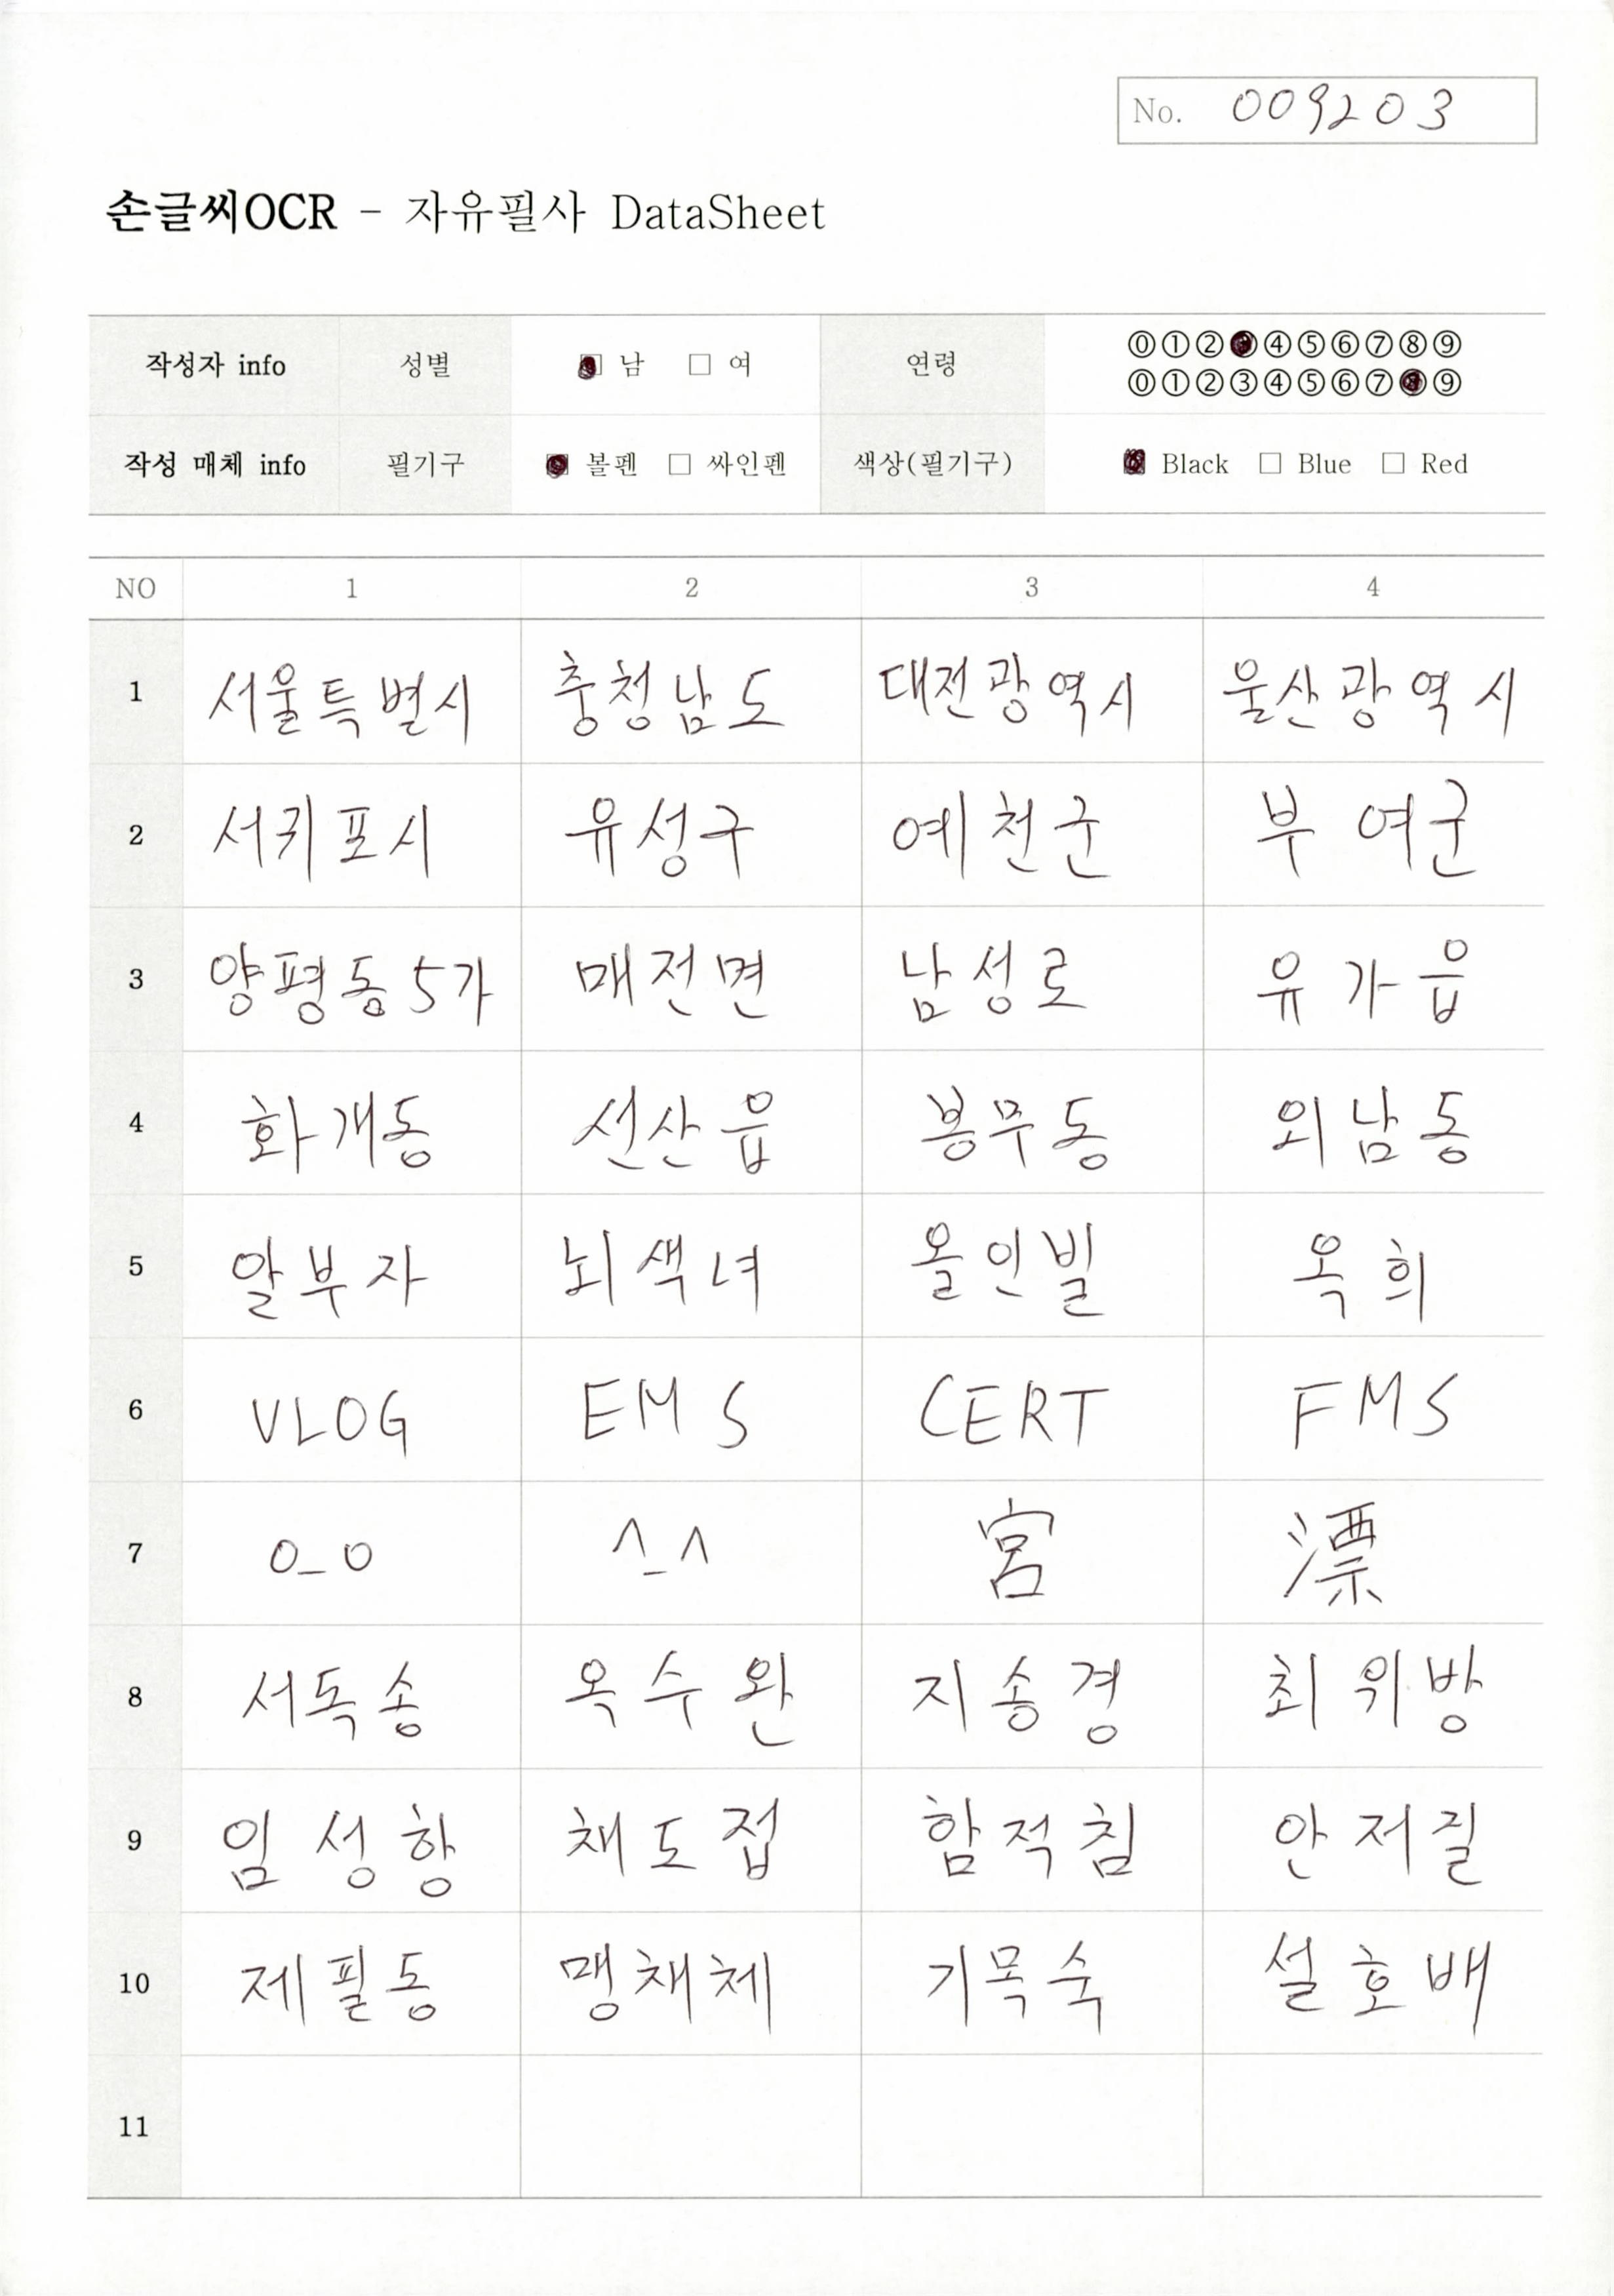 No. 009203
손글씨OCR - 자유필사 DataSheet
작성자 info 성별 남 여 연령 0 1 2 3 4 5 6 7 8 9
0 1 2 3 4 5 6 7 8 9
작성 매체 info 필기구 볼펜 싸인펜 색상(필기구) Black Blue Red
NO 1 2 3 4
1 서울특별시 충청남도 대전광역시 울산광역시
2 서귀포시 유성구 예천군 부여군
3 양평동5가 매전면 남성로 유가읍
4 화개동 선산읍 봉무동 외남동
5 알부자 뇌색녀 올인빌 옥희
6 VLOG EMS CERT FMS
7 O_O ^_^ 宮 漂
8 서독송 옥수완 지송경 최위방
9 임성항 채도접 함적침 안저질
10 제필동 맹채체 기목숙 설호배
11